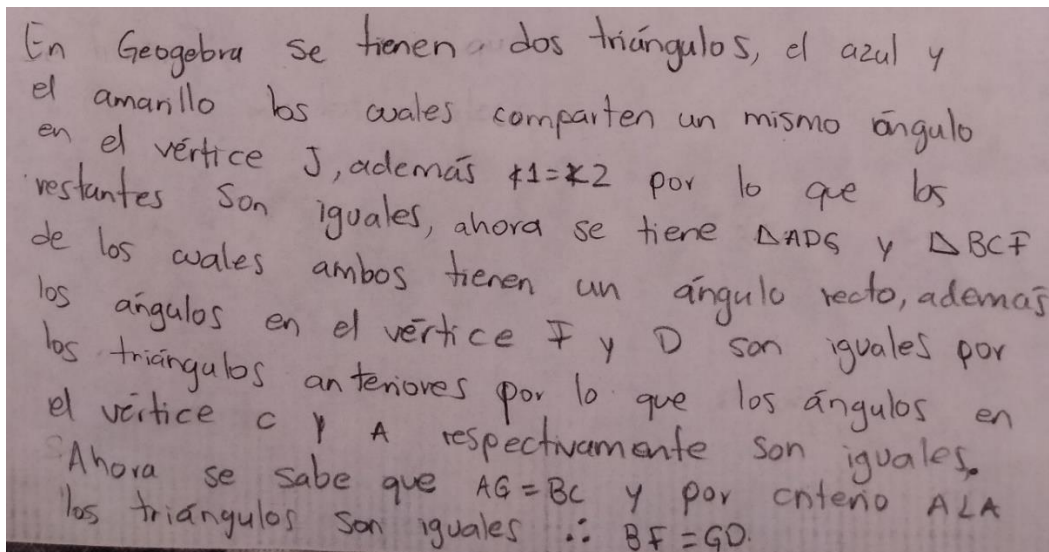 En Geogebra se tienen dos triángulos, el azul y
el amarillo los cuales comparten un mismo ángulo
en el vértice J, además ∡1=∡2 por lo que los
restantes son iguales, ahora se tiene △ADG y △BCF
de los cuales ambos tienen un ángulo recto, además
los ángulos en el vértice F y D son iguales por
los triángulos anteriores por lo que los ángulos en
el vértice C y A respectivamente son iguales.
Ahora se sabe que AG=BC y por criterio ALA
los triángulos son iguales ∴ BF=GD.